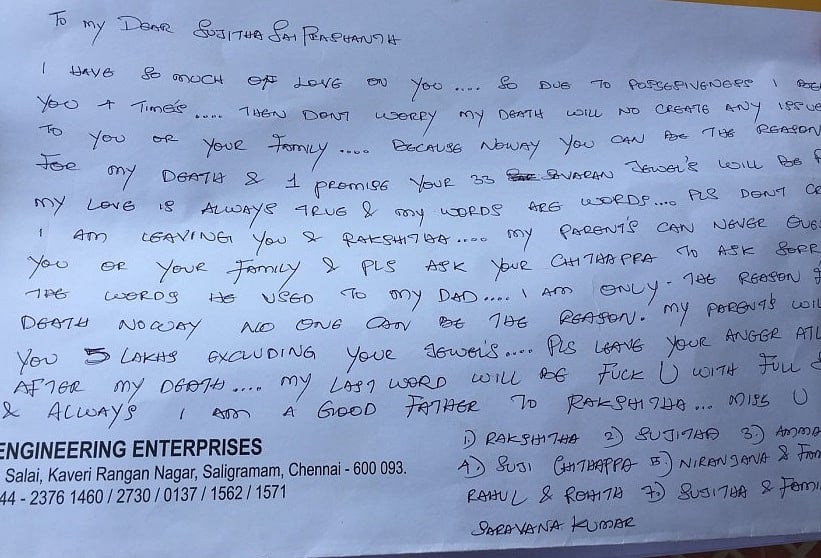 To my DEAR SUJITHA SAI PRASHANTH
I HAVE SO MUCH OF LOVE ON YOU.... SO DUE TO POSSESIVENESS I
YOU 4 TIME'S.... THEN DONT WORRY MY DEATH WILL NO CREATE ANY ISSUE
TO YOU OR YOUR FAMILY.... BECAUSE NOWAY YOU CAN BE THE REASON
FOR MY DEATH & I PROMISE YOUR 33 SAVARAN JEWEL'S WILL BE
MY LOVE IS ALWAYS TRUE & MY WORDS ARE WORDS.... PLS DONT
I AM LEAVING YOU & RAKSHITHA.... MY PARENT'S CAN NEVER
YOU OR YOUR FAMILY & PLS ASK YOUR CHITHAPPA TO ASK
THE WORDS HE USED TO MY DAD.... I AM ONLY THE REASON
DEATH NOWAY NO ONE CAN BE THE REASON. MY PARENTS
YOU 5 LAKHS EXCLUDING YOUR JEWEL'S.... PLS LEAVE YOUR ANGER
AFTER MY DEATH.... MY LAST WORD WILL BE FUCK U WITH FULL
& ALLWAYS I AM A GOOD FATHER TO RAKSHITHA... MISS U
1) RAKSHITHA 2) SUJITHA 3) AMMA
4) SUJI CHITHAPPA 5) NIRANJANA &
RAHUL & ROHITH 7) SUJITHA &
SARAVANA KUMAR
ENGINEERING ENTERPRISES
Salai, Kaveri Rangan Nagar, Saligramam, Chennai - 600 093.
44 - 2376 1460 / 2730 / 0137 / 1562 / 1571